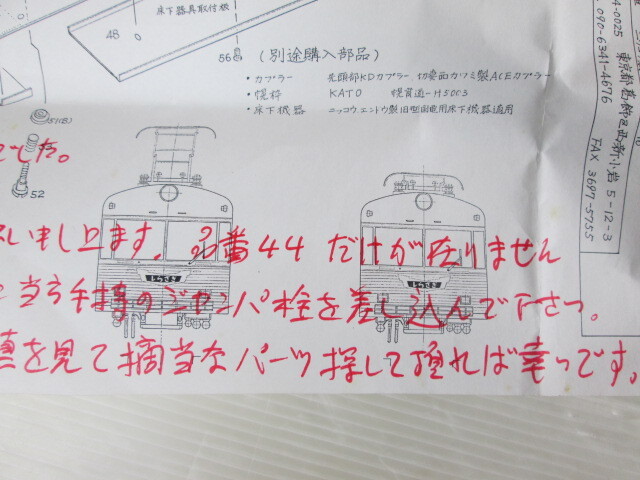 床下器具取付板
48
56
(別途購入部品)
・カプラー 先頭部KDカプラー 切妻面カツミ製ACEカプラー
・幌枠 KATO 幌貫通-H5003
・床下機器 ニッコウ、エンドウ製旧型国電用床下機器適用
51(B)
52
でした。
い申し上ます。品番44だけが在りません
当方手持のジャンパ栓を差し込んで下さっ。
真を見て適当なパーツ探して頂れば幸っです。
しらさぎ
しらさぎ
4-0025 東京都葛飾区西新小岩5-12-3
090-6341-4676
FAX 3697-5755